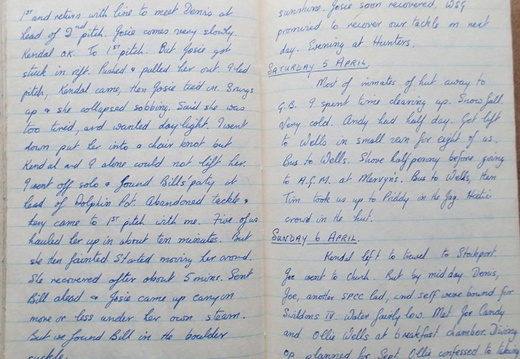 1st and return with line to meet Denis at
head of 2nd pitch. Josie comes very slowly.
Kendal O.K. To 1st pitch. But Josie got
stuck in rift. Pushed & pulled her out. I led
pitch, Kendal came, then Josie tied on. 3 rungs
up & she collapsed sobbing. Said she was
too tired, and wanted daylight. I went
down put her into a chair knot but
Kendal and I alone could not lift her.
I went off solo & found Bills' party at
head of Dolphin Pot. Abandoned tackle &
they came to 1st pitch with me. Five of us
hauled her up in about ten minutes. But
she then fainted. Started moving her around.
She recovered after about 5 mins. Sent
Bill ahead & Josie came up canyon
more or less under her own steam.
But we found Bill in the boulder
sunshine. Josie soon recovered. WSG
promised to recover our tackle on next
day. Evening at Hunters.
SATURDAY 5 APRIL.
Most of inmates of hut away to
G.B. I spent time cleaning up. Snow fall
Very cold. Andy had half day. Got left
to Wells in small van for eight of us.
Bus to Wells. Shove halfpenny before going
to A.G.M. at Mervyns. Bus to Wells, then
Tim took us up to Priddy in the Jag. Hectic
crowd in the hut.
SUNDAY 6 APRIL.
Kendal left to travel to Stockport.
Joe went to church. But by mid day Denis,
Joe, another SPCC lad, and self were bound for
Swildons IV. Water fairly low. Met Joe Candy
and Ollie Wells at breakfast chamber. Diving
op planned for Sept. Ollie confessed to taking